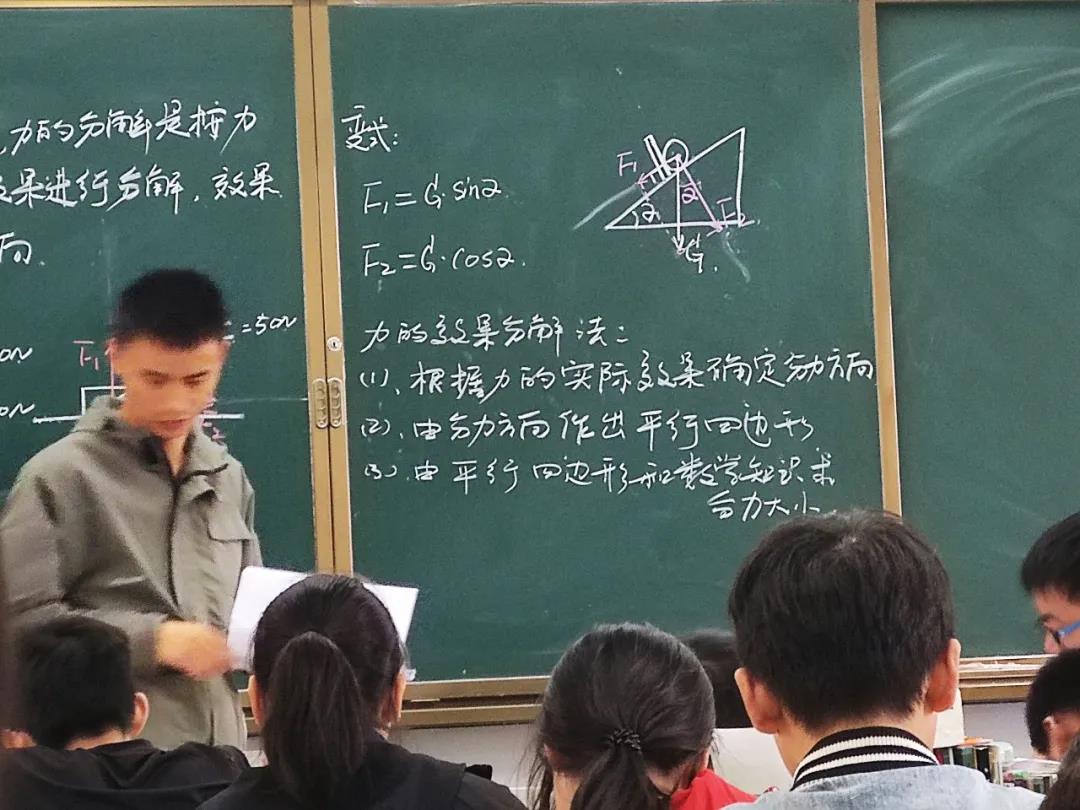 力的分解是按力
效果进行分解，效果
向.
=50N
0N
F₁
0N
F₂
变式：
F₁=G·sinα
F₂=G·cosα.
F₁
α
α
F₂
G.
力的效果分解法：
(1)、根据力的实际效果确定分力方向
(2)、由分力方向作出平行四边形
(3)、由平行四边形和数学知识求
分力大小.